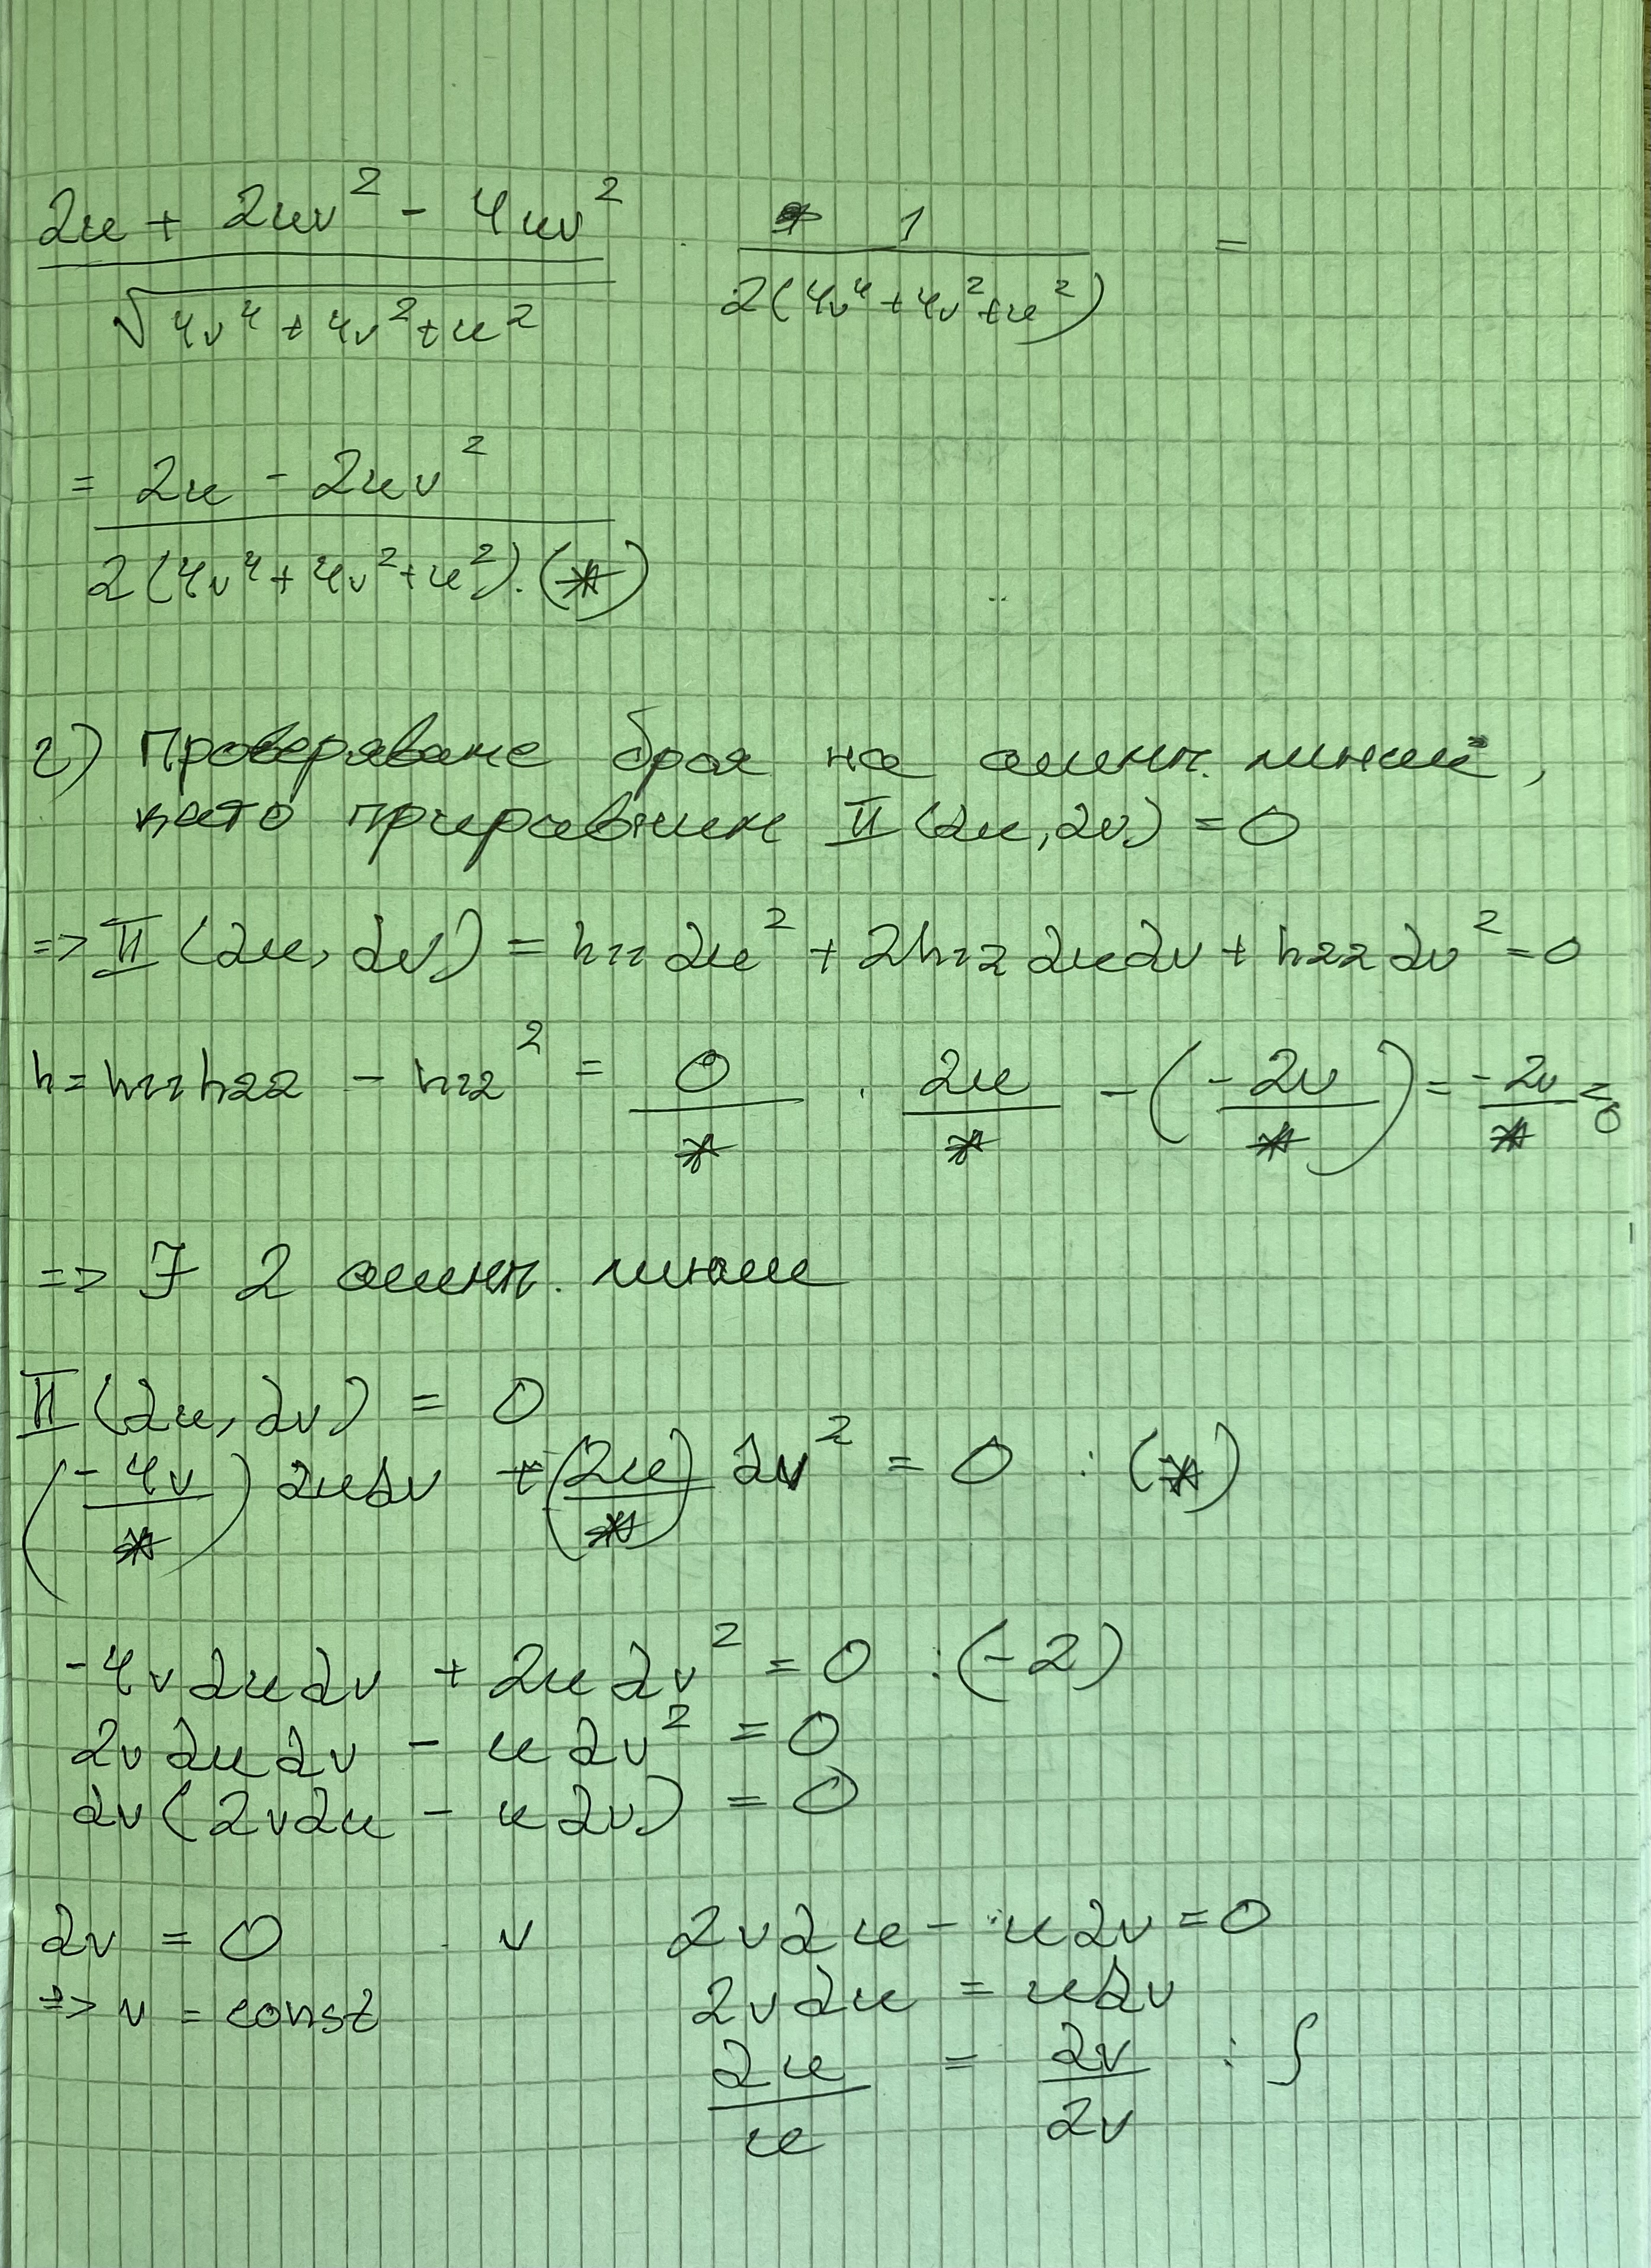 (2u + 2uv² - 4uv²) / √(4v⁴ + 4v² + u²) · 1 / 2(4v⁴ + 4v² + u²) =
= (2u - 2uv²) / 2(4v⁴ + 4v² + u²).(*)
г) Проверяваме броя на асимпт. линии,
като приравним II(du, dv) = 0
=> II (du, dv) = h₁₁ du² + 2h₁₂ du dv + h₂₂ dv² = 0
h = h₁₁h₂₂ - h₁₂² = 0/* · 2u/* - (-2v/*) = -2v/* < 0
=> ∃ 2 асимпт. линии
II (du, dv) = 0
(-4v/*) du dv + (2u/*) dv² = 0 : (*)
-4v du dv + 2u dv² = 0 : (-2)
2v du dv - u dv² = 0
dv (2v du - u dv) = 0
dv = 0 v 2v du - u dv = 0
=> v = const 2v du = u dv
du/u = dv/2v : ∫